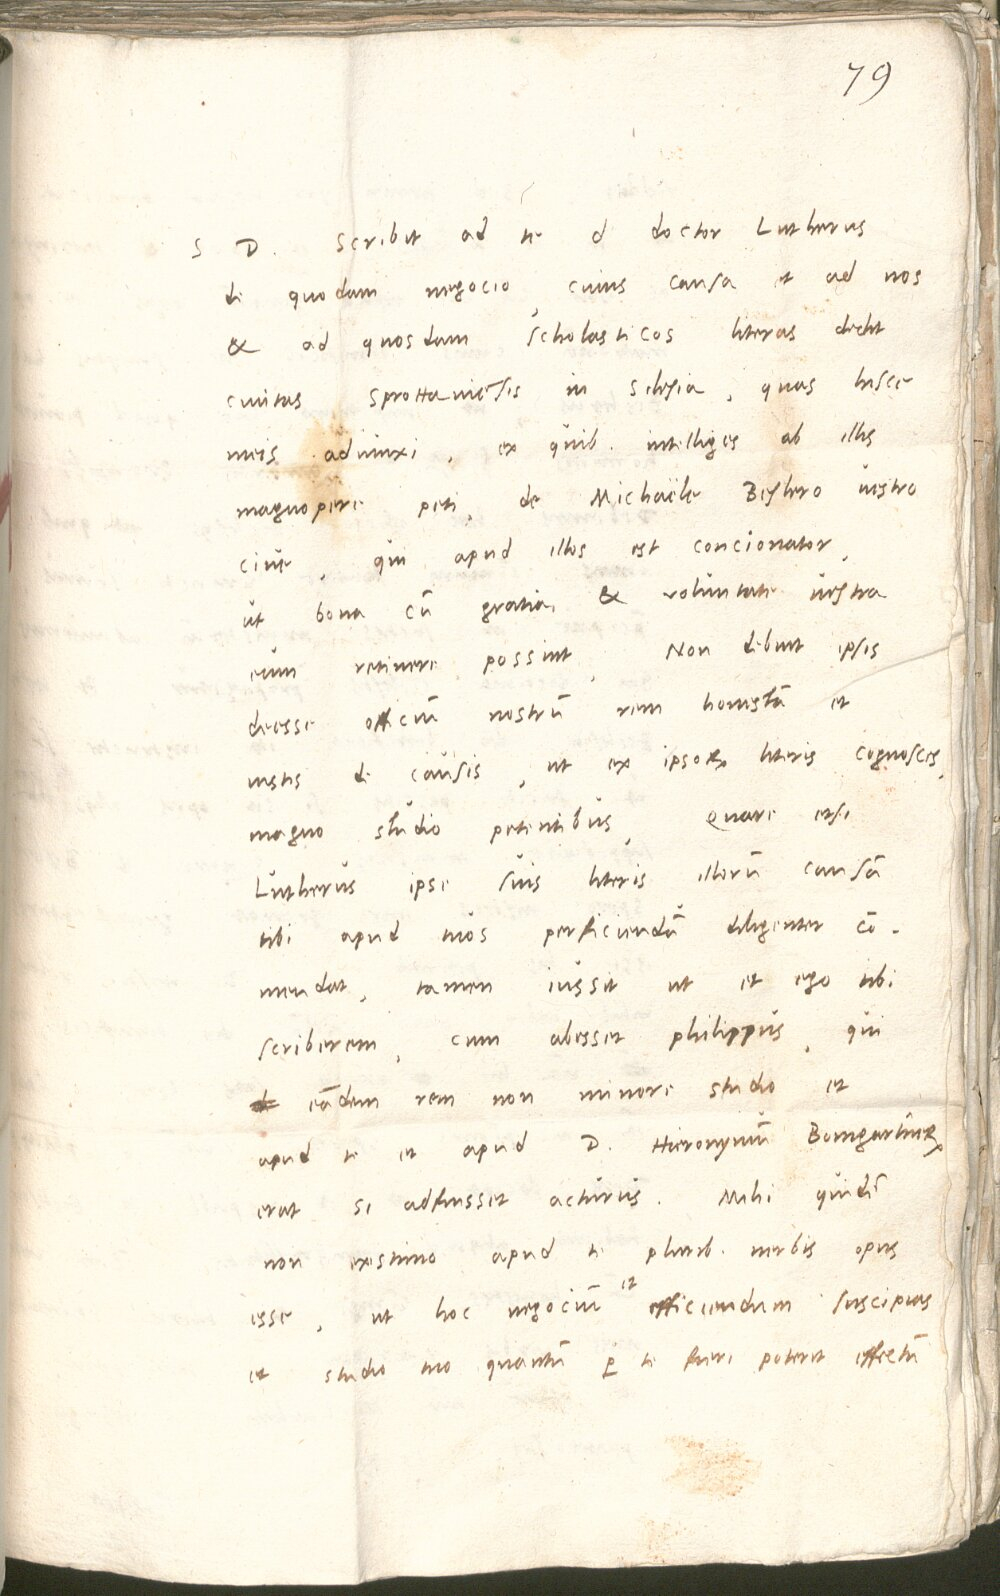 79
S D. Scribit ad te d doctor Lutherus
de quodam negocio, cuius causa et ad nos
& ad quosdam scholasticos literas dedit
civitas Sprottaviēsis in Silesia, quas hisce
meis adiunxi, ex quib. intelliges ab illis
magnopere peti, de Michaële Beslero vestro
cive, qui apud illos est concionator,
ut bona cū gratia, & voluntate vestra
eum retinere possint, Non debuit ipsis
deesse officiū nostrū rem honestā et
iustis de causis, ut ex ipsoꝝ literis cognosces,
magno studio petentibus, Quare etsi
Lutherus ipse suis literis illorū causā
tibi apud tuos perficiendā diligenter cō-
mendat, tamen iussit ut et ego tibi
scriberem, cum abesset philippus, qui
eādem rem non minore studio et
apud te et apud D. Hieronymū
erat si adfuisset acturus. Mihi quidē
non existimo apud te plurib. verbis opus
esse, ut hoc negociū et efficiendum suscipias
et studio tuo quantū ꝑ te fieri poterit effectū